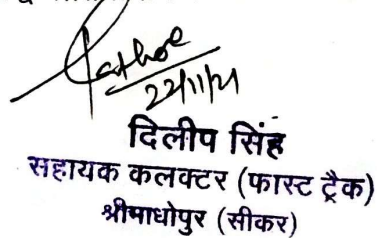 22/11/21
दिलीप सिंह
सहायक कलक्टर (फास्ट ट्रैक)
श्रीमाधोपुर (सीकर)